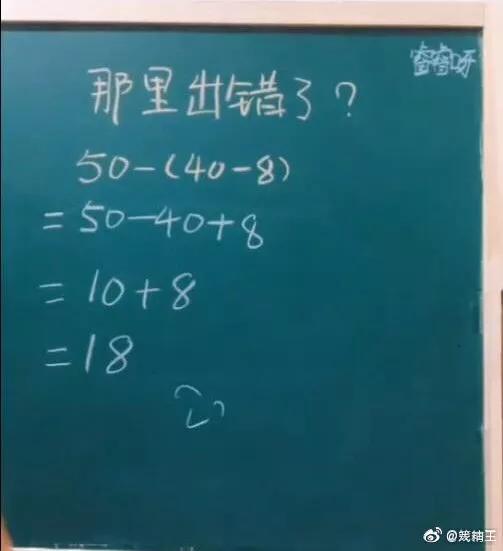 那里出错了?
50-(40-8)
=50-40+8
=10+8
=18
@篾精王